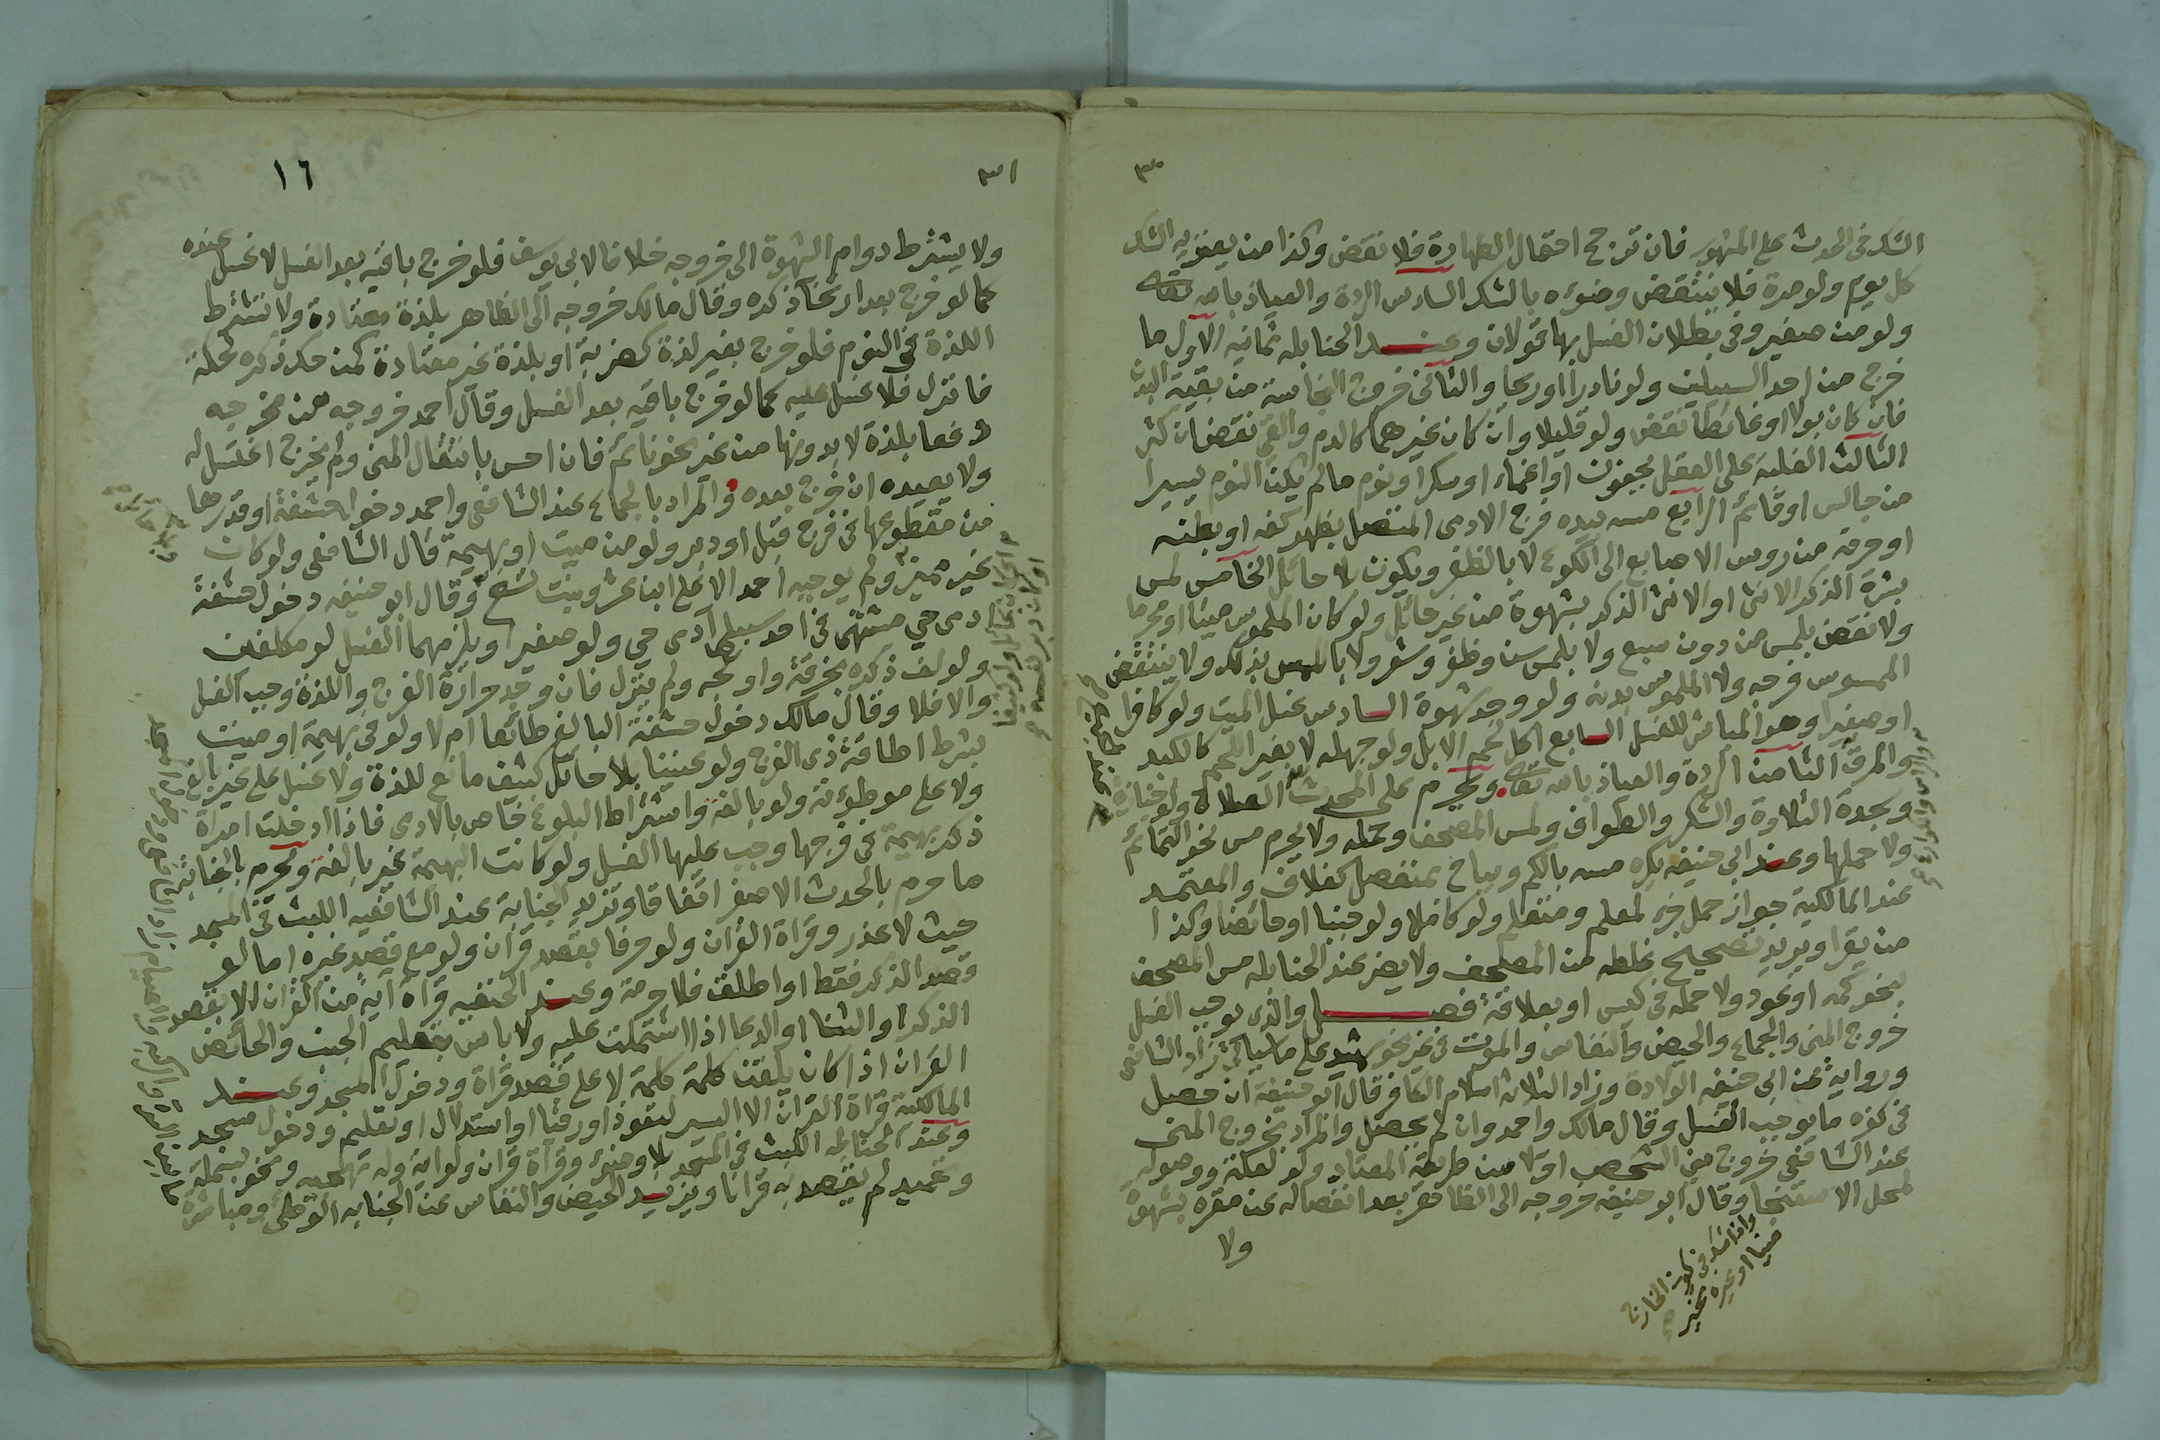 ٣٠
الشك فى الحدث على المشهور فان ترجح احتمال الطهارة فلا نقض وكذا من يعتريه الشك
كل يوم ولو مرة فلا ينتقض وضوءه بالشك السادس الردة والعياذ بالله تعالى
ولو من صغير وفى بطلان الغسل بها قولان وعند الحنابله ثمانيه الاول ما
خرج من احد السبيلين ولو نادرا او ريحا والثانى خروج النجاسة من بقية البدن
فان كان بولا او غائطا نقض ولو قليلا وان كان غيرهما كالدم والقئ نقض ان كثر
الثالث الغلبة على العقل بجنون او اغماء او سكر او نوم مالم يكن النوم يسيرا
من جالس او قائم الرابع مسه بيده فرج الادمى المتصل بظهر كفه او بطنه
او حرفه من روس الاصابع الى الكوع لا بالظفر ويكون بلا حائل الخامس لمس
بشرة الذكر الانثى او الانثى الذكر بشهوة من غير حائل ولو كان الملموس ميتا او محرما
ولا نقض بلمس من دون سبع ولا بلمس سن وظفر وشعر ولا باللمس بذلك ولا ينتقض
الممسوس فرجه ولا الملموس بدنه ولو وجد شهوة السادس غسل الميت ولو كافرا
او صغيرا وهو المباشر للغسل السابع اكل لحم الابل ولو جهله لا بغير اللحم كالكبد
والمرق الثامن الردة والعياذ بالله تعالى ويحرم على المحدث الصلاة ولو جنازة
وسجدة التلاوة والشكر والطواف ولمس المصحف وحمله ولا يحرم مس نحو التمائم
ولا حملها وعند ابى حنيفه يكره مسه بالكم ويباح بمنفصل كغلاف والمعتمد
عند المالكية جواز حمل جزء لمعلم ومتعلم ولو كاملا ولو جنبا او حائضا وكذا
من يقرا ويريد تصحيح غلطه من المصحف ولا يضر عند الحنابله مس المصحف
بنحو كمه او بعود ولا حمله فى كيس او بعلاقة فصل والذى يوجب الغسل
خروج المنى والجماع والحيض والنفاس والموت فى غير نحو شهيد على ما سياتى زاد الشافعى
ورواية عن ابى حنيفه الولادة وزاد الثلاثه اسلام الكافر قال ابو حنيفة ان حصل
فى كفره ما يوجب الغسل وقال مالك واحمد وان لم يحصل والمراد بخروج المنى
عند الشافعى خروج منى الشخص اولا من طريقه المعتاد ولو لعلة ووصوله
لمحل الاستنجا وقال ابو حنيفه خروجه الى الظاهر بعد انفصاله عن مقره بشهوة
ولا
واذا شك فى كون الخارج
منيا او غيره تخير
٣١
١٦
ولا يشترط دوام الشهوة الى خروجه خلافا لابى يوسف فلو خرج باقيه بعد الغسل لا غسل عنده
كما لو خرج بعد ارتخآ ذكره وقال مالك خروجه الى الظاهر بلذة معتادة ولا تشترط
اللذة فى النوم فلو خرج بغير لذة كضربة او بلذة غير معتادة كمن حك ذكره لحكة
فانزل فلا غسل عليه كما لو خرج باقيه بعد الغسل وقال احمد خروجه من مخرجه
دفعا بلذة لا بدونها من غير نحو نائم فان احس بانتقال المنى ولم يخرج اغتسل له
ولا يعيده ان خرج بعده والمراد بالجماع عند الشافعى واحمد دخول حشفة او قدرها
من مقطوعها فى فرج قبل او دبر ولو من ميت او بهيمة قال الشافعى ولو كان
غير مميز ولم يوجبه احمد الا على ابن عشر وبنت تسع وقال ابو حنيفه دخول حشفة
ادمى حي مشتهى فى احد سبيلى آدمى حي ولو صغيرا ويلزمهما الغسل لو مكلفان
ولو لف ذكره بخرقة واولجه ولم ينزل فان وجد حرارة الفرج واللذة وجب الغسل
والا فلا وقال مالك دخول حشفة البالغ طائعا ام لا ولو فى بهيمة او ميت
بشرط اطاقة ذى الفرج ولو عنينا بلا حائل كثيف مانع للذة ولا غسل على غير بالغ
ولا على موطوءته ولو بالغة واشتراط البلوغ خاص بالادمى فاذا ادخلت امراة
ذكر بهيمة فى فرجها وجب عليها الغسل ولو كانت البهيمة غير بالغة ويحرم بالجنابة
ما حرم بالحدث الاصغر اتفاقا وتزيد الجنابة عند الشافعيه اللبث فى المسجد
حيث لا عذر وقراة القران ولو حرفا بقصد قران ولو مع قصد غيره اما لو
قصد الذكر فقط او اطلق فلا حرمة وعند الحنفيه قراة آية من القران الا بقصد
الذكر او الثنا او الدعا اذا اشتملت عليه ولا باس بتعليم الجنب والحائض
القران اذا كان يلقن كلمة كلمة لا على قصد قراة ودخول المسجد وعند
المالكية قراة القران الا اليسير لتعوذ او رقيا او استدلال او تعليم ودخول مسجد
وعند الحنابله اللبث فى المسجد بلا وضوء وقرآة قران ولو اية وله تهجيه ونحو بسملة
وتحميد لم يقصد به قرانا ويزيد الحيض والنفاس عن الجنابه الوطئ ومباشرة